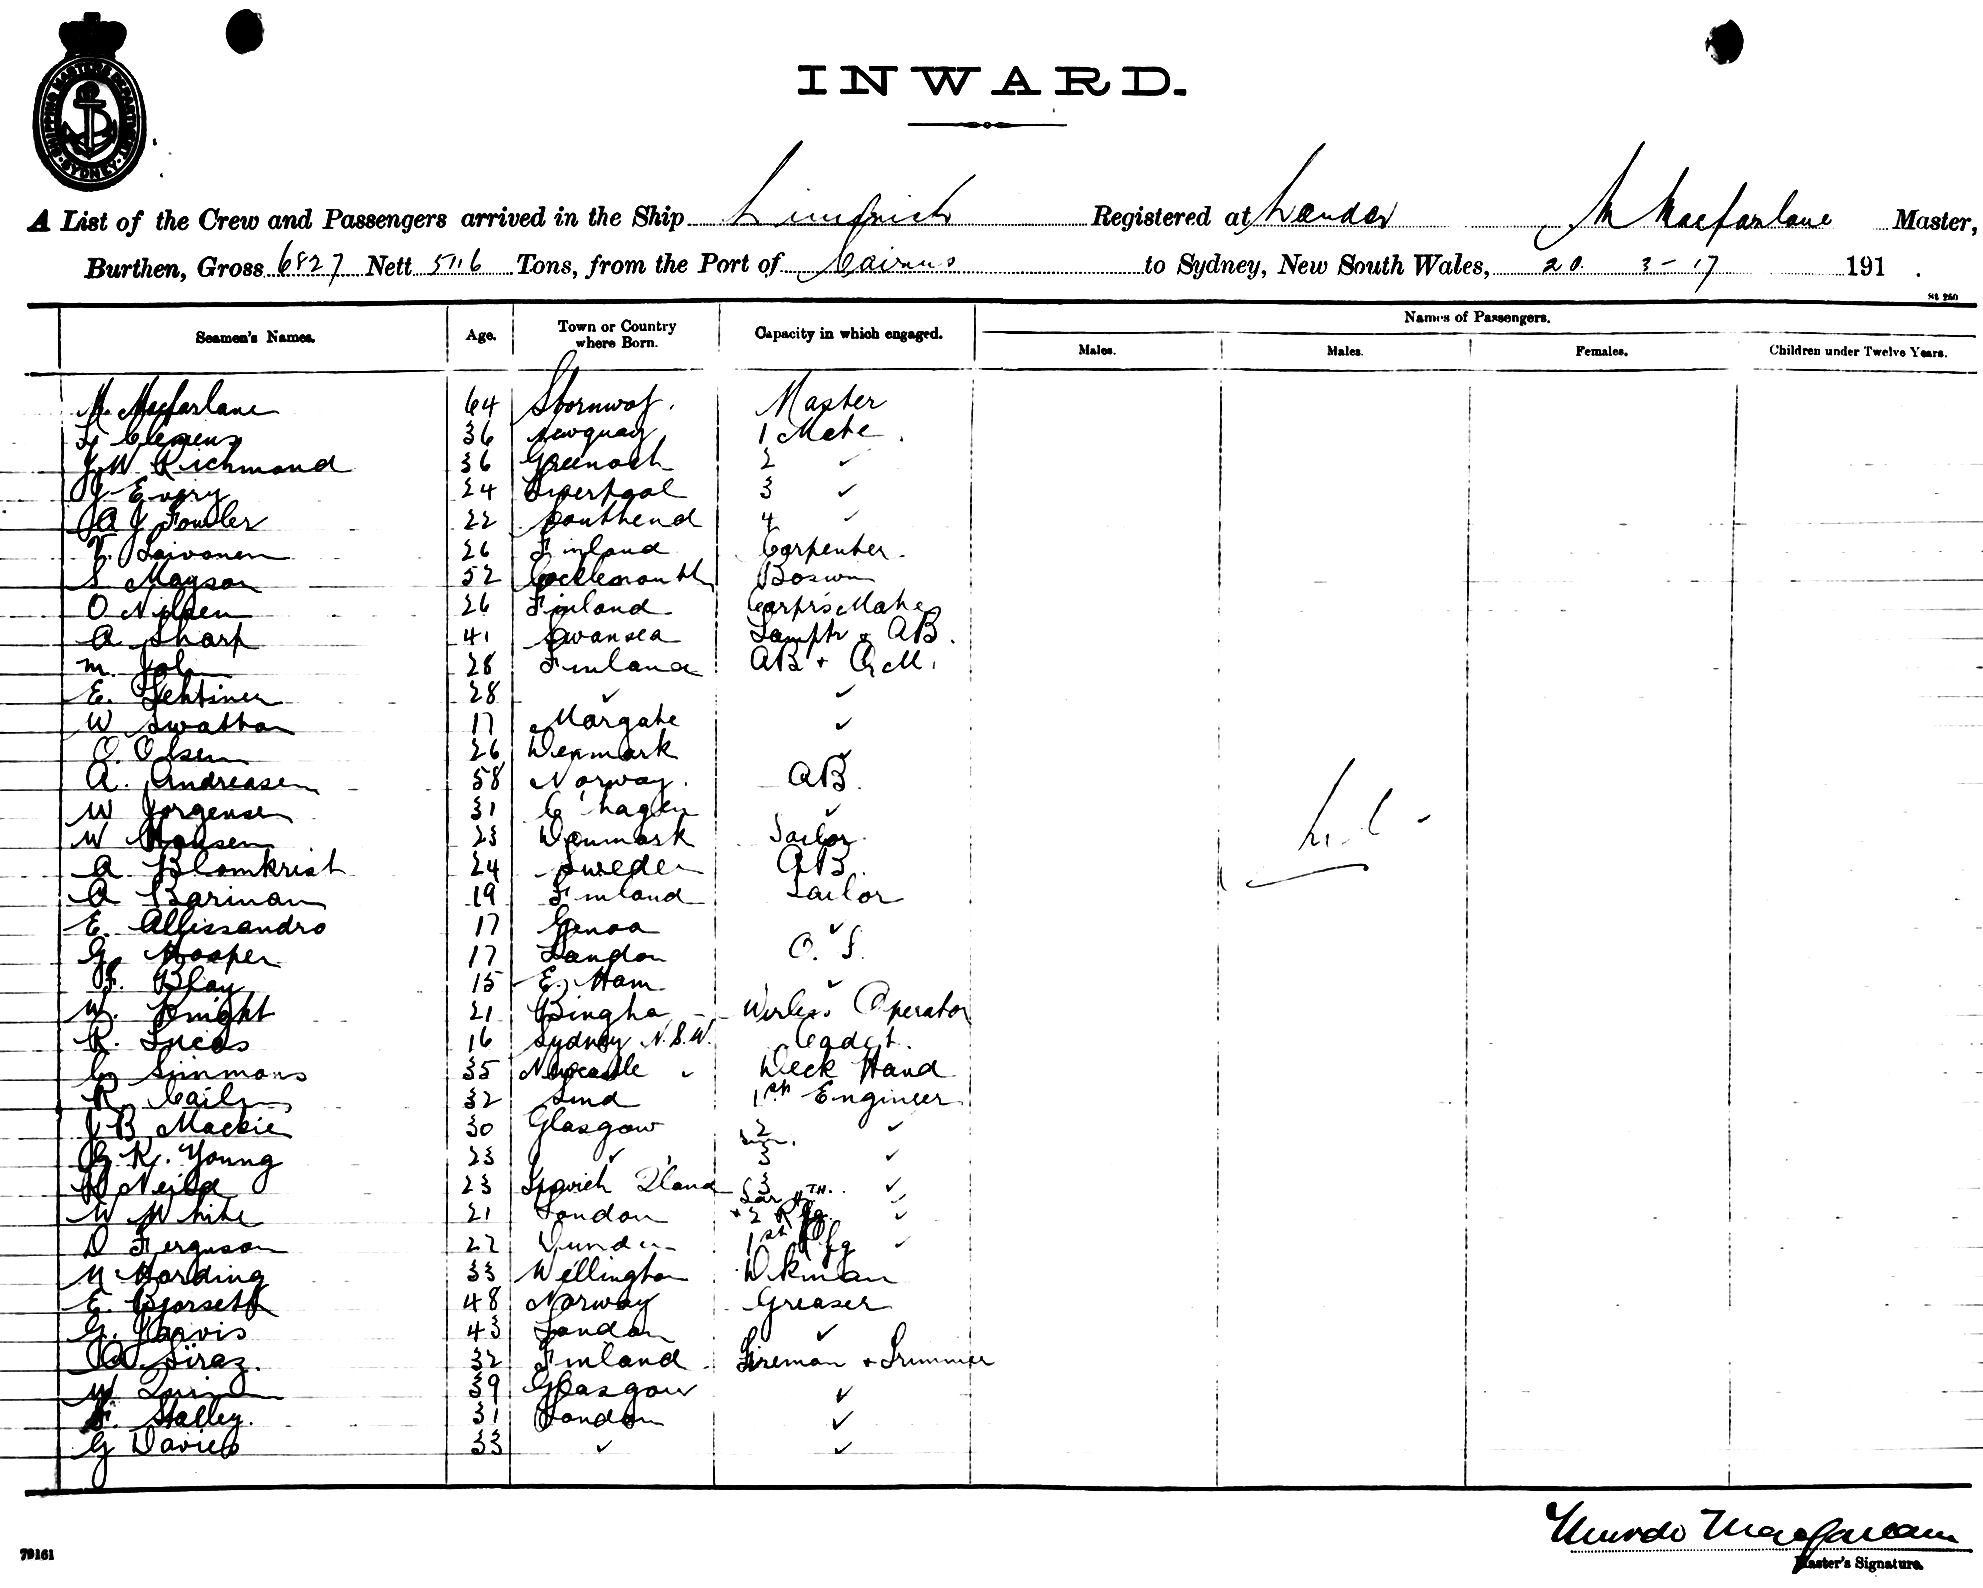 SHIPPING MASTERS DEPARTMENT SYDNEY
INWARD.
A List of the Crew and Passengers arrived in the Ship Limerick Registered at London M Macfarlane Master,
Burthen, Gross 6827 Nett Tons, from the Port of Cairns to Sydney, New South Wales, 20 3-17 191 .
Seamen's Names. Age. Town or Country where Born. Capacity in which engaged. Names of Passengers.
Males. Males. Females. Children under Twelve Years.
M. Macfarlane 64 Stornway. Master
Clemens 36 Newquay 1 Mate.
J W Richmond 36 Greenock 2 ✓
J Evory 24 Liverpool 3 ✓
A J Fowler 22 Southend 4 ✓
Saivonen 26 Finland Carpenter.
S Mayson 52 Cocklemouth Boswn
O Nilsen 26 Finland Carptr's Mate
A Sharp 41 Swansea Lamptr & AB.
M. 28 Finland AB + Q M.
E. Lehtinen 28 ✓ ✓
W Swatton 17 Margate ✓
O. Olsen 26 Denmark ✓
A. Andreasen 58 Norway. AB.
W Jorgensen 31 C'hagen ✓
W Hansen 23 Denmark Sailor.
A Blomkrist 24 Sweden AB.
A Bariman 19 Finland Sailor
E. Allissandro 17 Genoa ✓
G. Hooper 17 London O. S.
F. Blay 15 E. Ham ✓
W. Knight 21 Wirless Operator
R. Lucas 16 Sydney N.S.W. Cadet.
C Simmons 35 Newcastle ✓ Deck Hand
R. 32 1st Engineer
J B Mackie 30 Glasgow 2 ✓
G K. Young 23 ✓ 3 ✓
Neild 23 Ipswich Qland 3 ✓
W White 21 London 4TH. + 2 Rfg ✓
D Ferguson 22 Dundee 1st Rfg ✓
N Harding 33 Wellington Dkman
E. Bjorseth 48 Norway Greaser
G. Jarvis 43 London ✓
Siraz. 32 Finland Fireman + Trimmer
W Quinn 39 Glasgow ✓
F. Stalley. 31 London ✓
G Davies 33 ✓ ✓
Nil
Murdo Macfarlane
Master's Signature.
79161